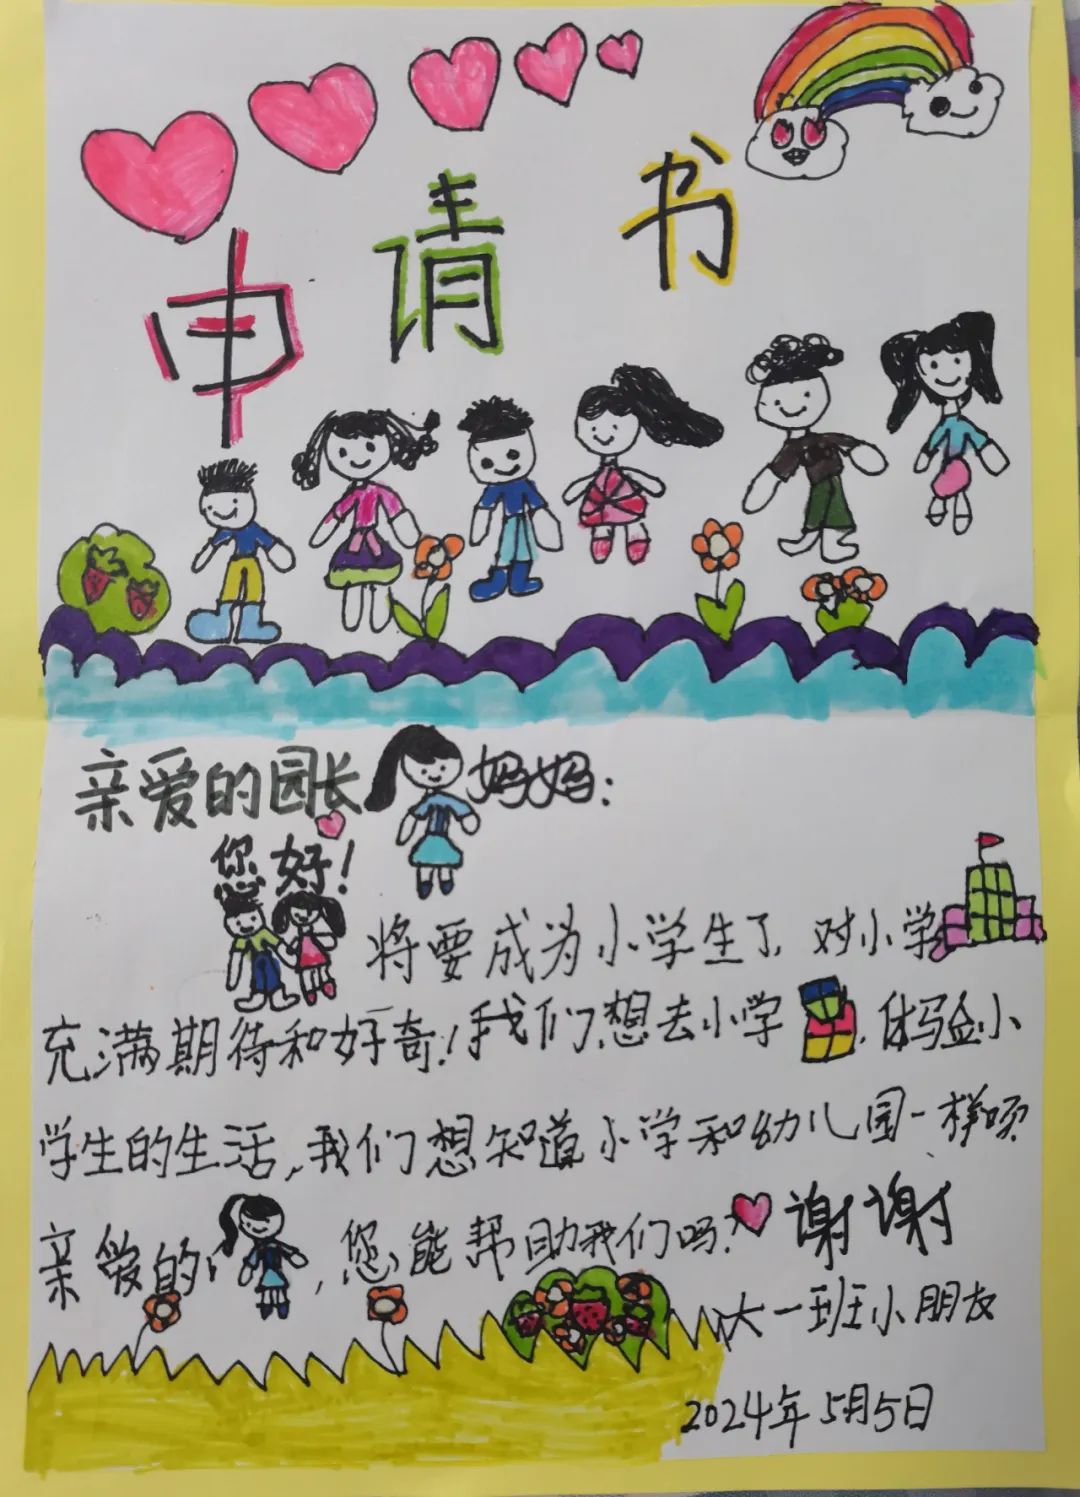 申请书
亲爱的园长妈妈:
您好!
将要成为小学生了,对小学
充满期待和好奇!我们想去小学,体验小
学生的生活,我们想知道小学和幼儿园一样呗
亲爱的,您能帮助我们吗?谢谢
大一班小朋友
2024年5月5日